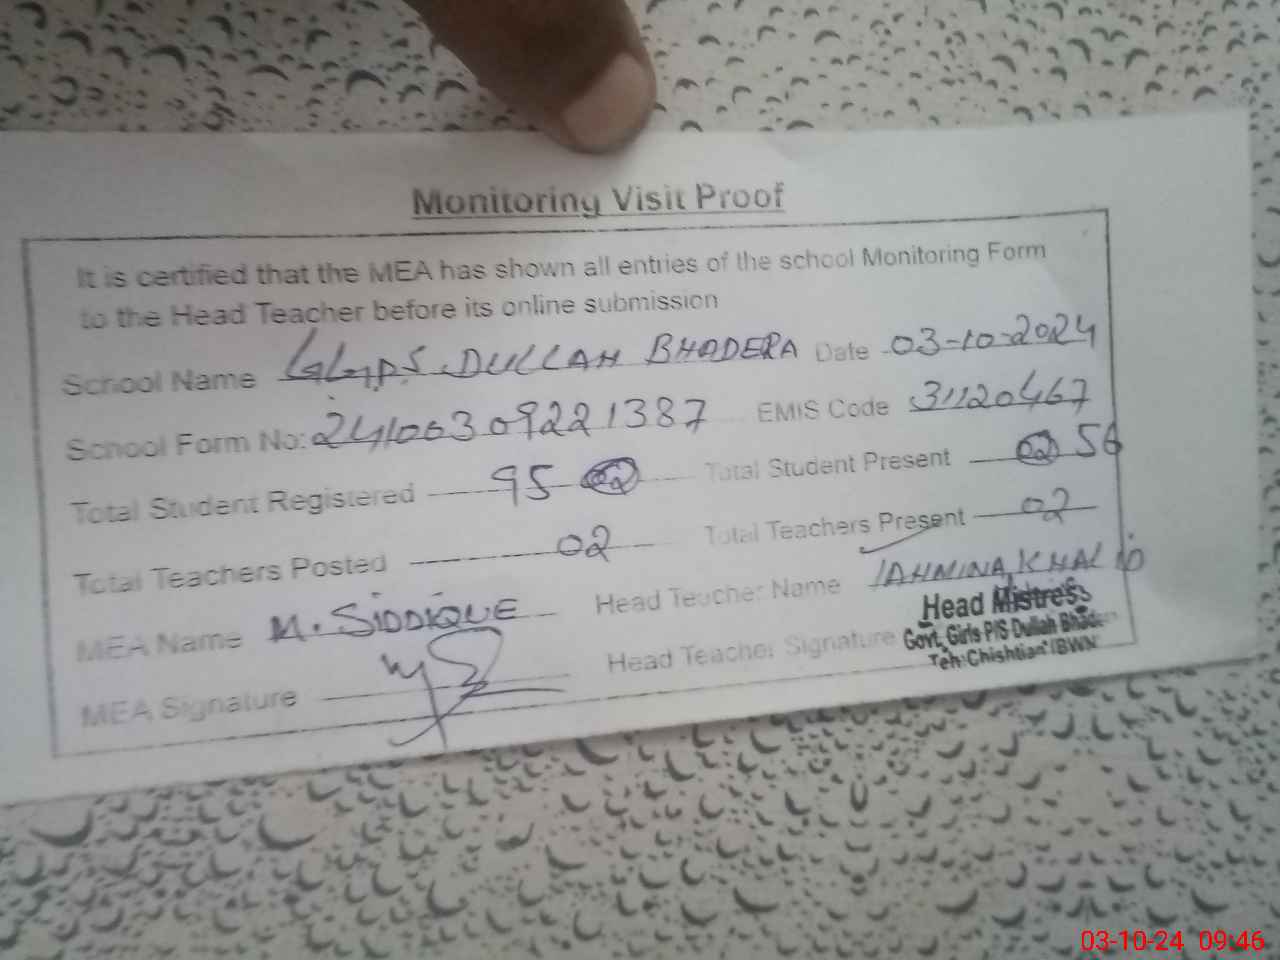 Monitoring Visit Proof
It is certified that the MEA has shown all entries of the school Monitoring Form
to the Head Teacher before its online submission
School Name GGPS DULLAH BHADERA Date 03-10-2024
School Form No: 24100309221387 EMIS Code 31120467
Total Student Registered 95 Total Student Present 56
Total Teachers Posted 02 Total Teachers Present 02
MEA Name M. SIDDIQUE Head Teacher Name TAHMINA KHALID
Head Mistress
MEA Signature Head Teacher Signature Govt. Girls P/S Dullah Bhadera
Teh: Chishtian (BWN
03-10-24 09:46